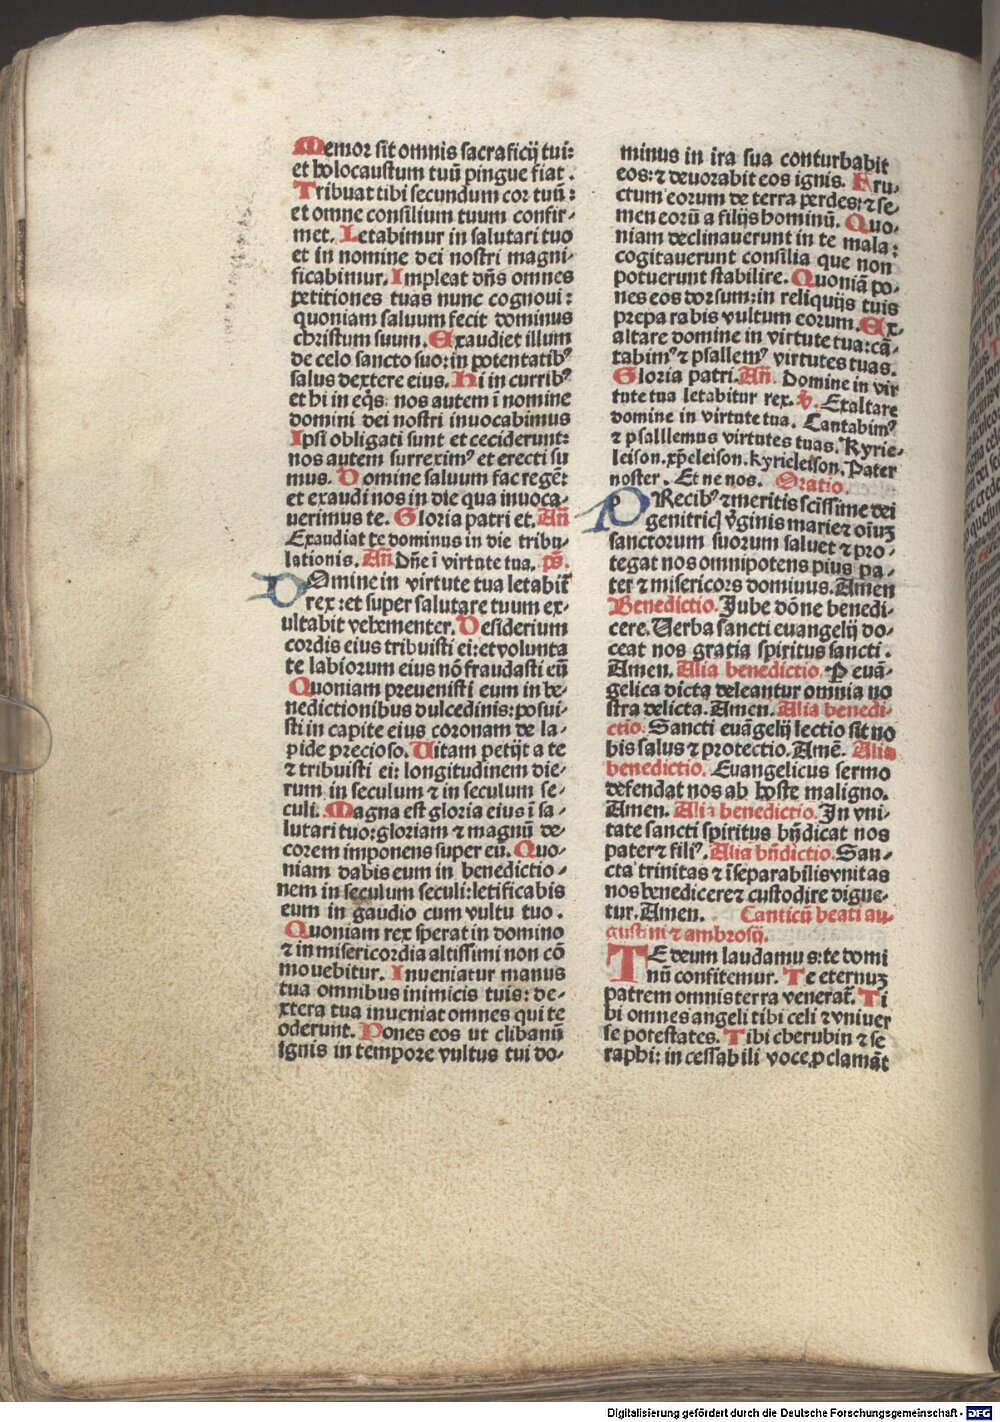 Memor sit omnis sacraficij tui:
et holocaustum tuū pingue fiat.
Tribuat tibi secundum cor tuū:
et omne consilium tuum confir-
met. Letabimur in salutari tuo
et in nomine dei nostri magni-
ficabimur. Impleat dn̄s omnes
petitiones tuas nunc cognoui:
quoniam saluum fecit dominus
christum suum. Exaudiet illum
de celo sancto suo: in potentatibꝰ
salus dextere eius. Hi in curribꝰ
et hi in eq̄s: nos autem ī nomine
domini dei nostri inuocabimus
Ipsi obligati sunt et ceciderunt:
nos autem surreximꝰ et erecti su
mus. Domine saluum fac regē:
et exaudi nos in die qua inuoca-
uerimus te. Gloria patri et. Añ
Exaudiat te dominus in die tribu-
lationis. Añ. Dn̄e ī virtute tua. ps̄.
Domine in virtute tua letabit̄
rex: et super salutare tuum ex-
ultabit vehementer. Desiderium
cordis eius tribuisti ei: et volunta
te labiorum eius nō fraudasti eū
Quoniam preuenisti eum in be-
nedictionibus dulcedinis: posui-
sti in capite eius coronam de la-
pide precioso. Uitam petijt a te
⁊ tribuisti ei: longitudinem die-
rum in seculum ⁊ in seculum se-
culi. Magna est gloria eius ī sa-
lutari tuo: gloriam ⁊ magnū de-
corem impones super eū. Quo-
niam dabis eum in benedictio-
nem in seculum seculi: letificabis
eum in gaudio cum vultu tuo.
Quoniam rex sperat in domino
⁊ in misericordia altissimi non cō
mouebitur. Inueniatur manus
tua omnibus inimicis tuis: de-
xtera tua inueniat omnes qui te
oderunt. Pones eos ut clibanū
ignis in tempore vultus tui do-
minus in ira sua conturbabit
eos: ⁊ deuorabit eos ignis. Fru-
ctum eorum de terra perdes: ⁊ se-
men eorū a filijs hominū. Quo-
niam declinauerunt in te mala:
cogitauerunt consilia que non
potuerunt stabilire. Quoniā po-
nes eos dorsum: in reliquijs tuis
prepa rabis vultum eorum. Ex-
altare domine in virtute tua: cā-
tabimꝰ ⁊ psallemꝰ virtutes tuas.
Gloria patri. Añ. Domine in vir
tute tua letabitur rex. ℣. Exaltare
domine in virtute tua. Cantabimꝰ
⁊ psalllemus virtutes tuas. Kyrie-
leison. xp̄eleison. kyrieleison. Pater
noster. Et ne nos. Oratio.
PRecibꝰ ⁊ meritis scīssime dei
genitricꝭ v̄ginis marie ⁊ oīuꝫ
sanctorum suorum saluet ⁊ pro-
tegat nos omnipotens pius pa-
ter ⁊ misericors domiuus. Amen
Benedictio. Jube dōne benedi-
cere. Uerba sancti euangelij do-
ceat nos gratia spiritus sancti.
Amen. Alia benedictio. P euā-
gelica dicta deleantur omnia no
stra delicta. Amen. Alia benedi-
ctio. Sancti euāgelij lectio sit no
bis salus ⁊ protectio. Amē. Alia
benedictio. Euangelicus sermo
defendat nos ab hoste maligno.
Amen. Alia benedictio. In vni-
tate sancti spiritus bn̄dicat nos
pater ⁊ filiꝰ. Alia bn̄dictio. San-
cta trinitas ⁊ īseparabilis vnitas
nos benedicere ⁊ custodire digne-
tur. Amen. Canticū beati au-
gustini ⁊ ambrosij.
TE deum laudamus: te domi
nū confitemur. Te eternuꝫ
patrem omnis terra venerat̄. Ti
bi omnes angeli tibi celi ⁊ vniuer
se potestates. Tibi cherubin ⁊ se
raphi: in cessabili voce ꝓclamāt
Digitalisierung gefördert durch die Deutsche Forschungsgemeinschaft - DFG